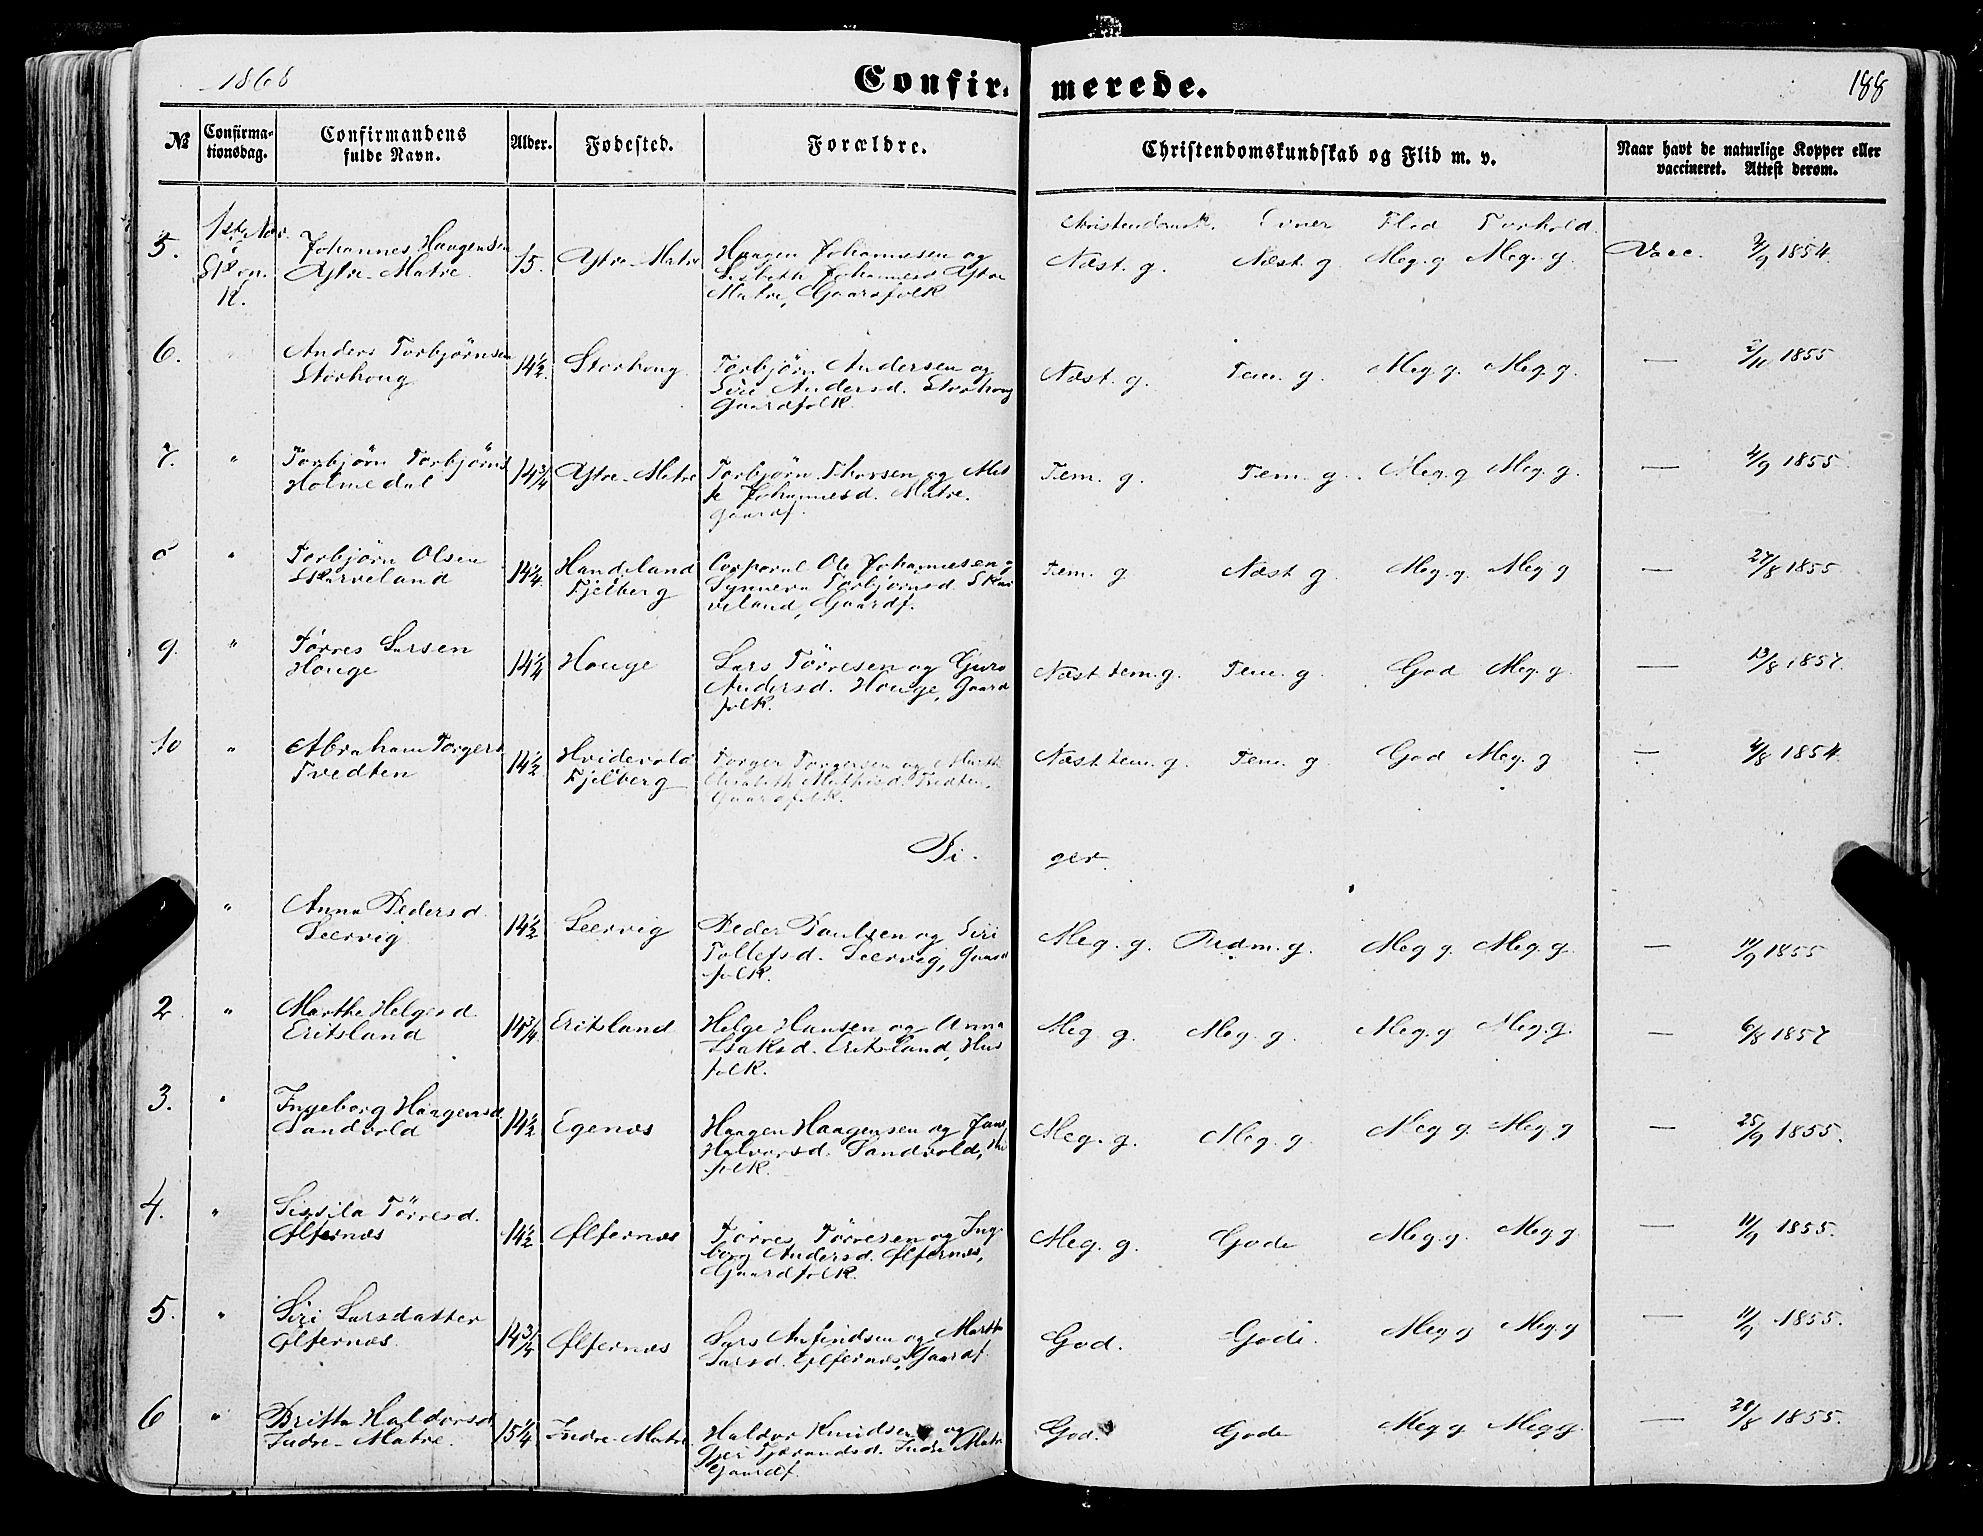 1868
Confirmerede.
188
№
Confirma-
tionsdag.
Confirmandens
fulde Navn.
Alder.
Fødested.
Forældre.
Christendomskundskab og Flid m. v.
Naar havt de naturlige Kopper eller
vaccineret. Attest derom.
Christendomsk. Evner Flid Forhold.
5. 1ste Nov. i Skon. K.
Johannes Haagensen
Ytre-Matre
15. Ytre-Matre
Haagen Johannesen og
Lisbeth Johannesd Ytre
Matre, Gaardfolk
Næst. g. Næst. g Meg. g Meg. g. Vacc. 2/9 1854.
6.
Anders Torbjørnsen
Storhoug
14½ Storhoug
Torbjørn Andersen og
Siri Andersd. Storhoug
Gaardfolk.
Næst. g. Tem. g. Meg. g. Meg. g. — 2/11 1855
7. "
Torbjørn Torbjørns
Holmedal
14¾ Ytre-Matre
Torbjørn Thorsen og Met
te Johannesd. Matre.
Gaardf.
Tem. g. Tem. g. Meg. g Meg. g. — 4/9 1855.
8 "
Torbjørn Olsen
Skarveland
14¼ Handeland
Fjelberg
Corporal Ole Johannesen o
Synneva Torbjørnsd. Skar
veland, Gaardf.
Tem. g Næst g. Meg. g. Meg. g — 27/8 1855.
9. "
Tørres Larsen
Houge
14¼ Houge
Lars Tørresen og Guro
Andersd. Houge, Gaard
folk.
Næst tem. g. Tem. g. God Meg. g. — 13/8 1857.
10 "
Abraham Torgers
Tvedten
14½ Hvidevold
Fjelberg
Torger Torgersen og Marthe
Elisabeth Mathisd. Tvedten,
Gaardfolk.
Næst tem. g. Tem. g. God Meg. g — 4/8 1854.
Pi- ger.
"
Anna Pedersd.
Leervig
14½ Leervig
Peder Paulsen og Siri
Tollefsd. Leervig, Gaard
folk.
Meg. g. Udm. g. Meg g. Meg. g. — 11/9 1855
2 "
Marthe Helgesd.
Eritsland
14¾ Eritsland
Helge Hansen og Anna
Isaksd. Eritsland, Hus
folk.
Meg. g. Meg. g. Meg. g Meg. g. — 6/8 1857
3. "
Ingeborg Haagensd.
Sandvold
14½ Egenæs
Haagen Haagensen og
Halvorsd. Sandvold,
folk.
Meg. g. Meg. g. Meg g. Meg. g — 25/9 1855.
4. "
Sissila Tørresd.
Ølfernæs
14½ Ølfernæs
Tørres Tørresen og Inge
borg Andersd. Ølfernæs,
Gaardfolk.
Meg. g. Gode Meg. g. Meg. g — 11/9 1855.
5. "
Siri Larsdatter
Ølfernæs.
14¾ Ølfernæs
Lars Anfindsen og Marthe
Larsd. Ølfernæs, Gaardf.
God. Gode. Meg g Meg. g — 11/9 1855.
6 "
Britta Haldorsd.
Indre-Matre.
15¼ Indre-Matre.
Haldor Knudsen og
Tjerandsd. Indre Matre
Gaardf.
God. Gode Meg g Meg g. — 20/8 1855.